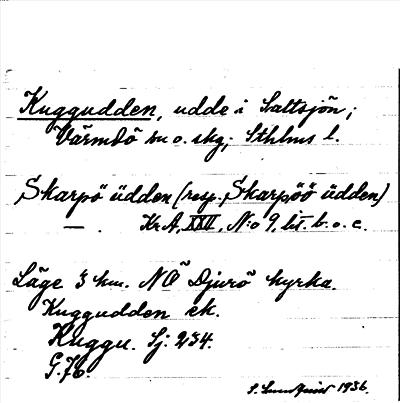 Kuggudden, udde i Saltsjön;
Värmdö sn o. skg; Sthlms l.
Skarpö üdden (resp. Skarpöö üdden)
— . KrA, XXII, N:o 9, lit. b. o. c.
Läge 3 km. NÖ Djurö kyrka.
Kuggudden ek.
Kuggu. Sj: 254.
G.76.
1936.